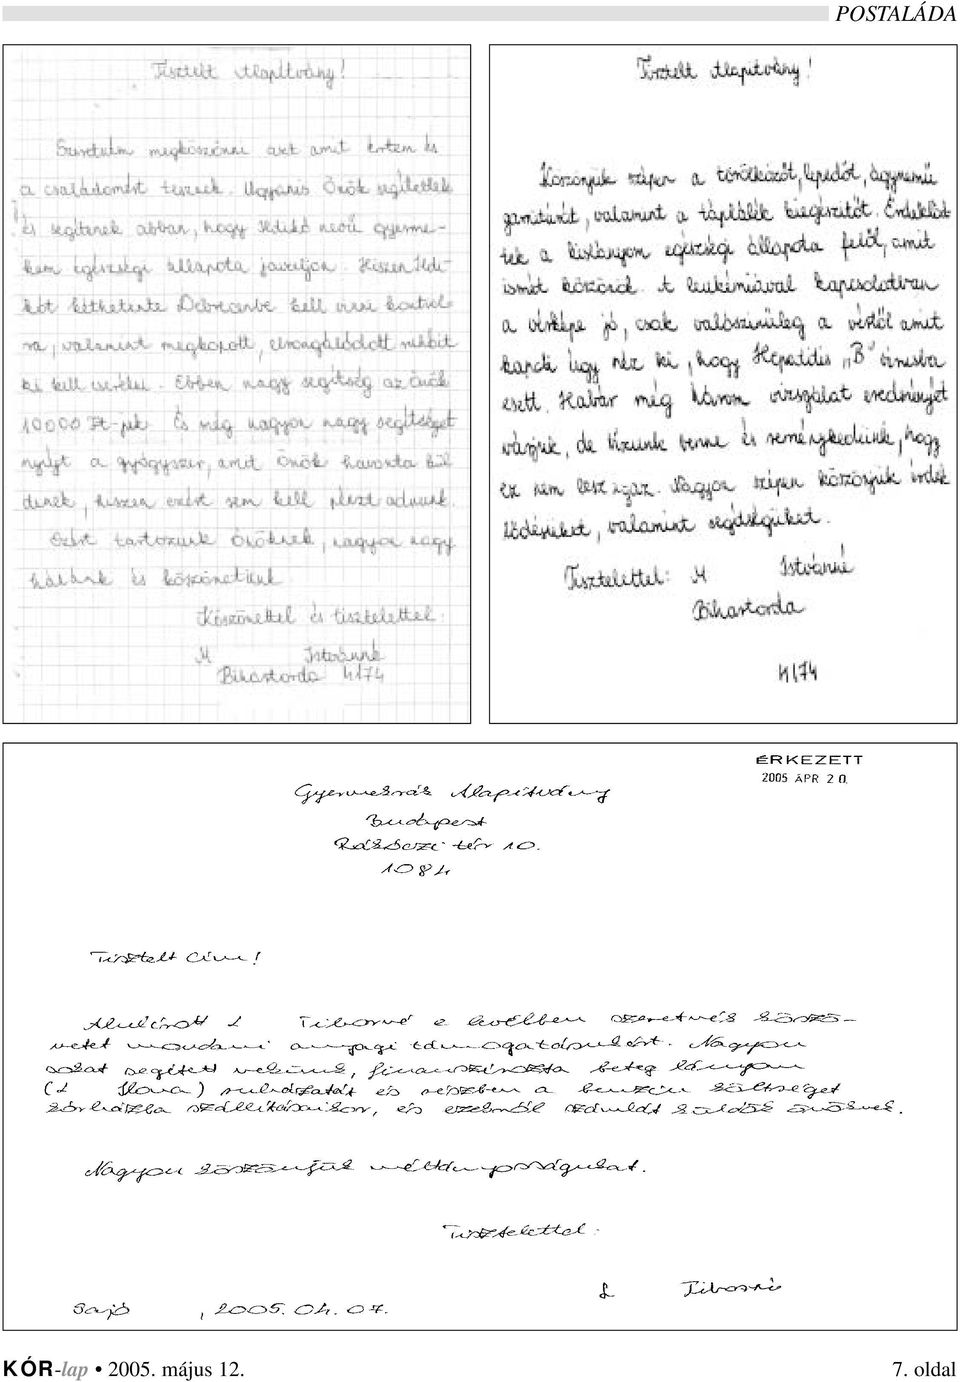 POSTALÁDA
Tisztelt Alapítvány!
Szeretném megköszönni azt amit értem és
a családomért tesznek. Ugyanis Önök segítettek
és segítenek abban, hogy Ildikó nevű gyerme-
kem egészségi állapota javuljon. Hiszen Ildi-
kót kéthetente Debrecenbe kell vinni kontrol-
ra, valamint megkopott, elrongálódott ruháit
ki kell cserélni. Ebben nagy segítség az önök
10000 Ft-juk. És még nagyon nagy segítséget
nyújt a gyógyszer, amit Önök havonta kül
denek, hiszen ezért sem kell pénzt adnunk.
Ezért tartozunk Önöknek, nagyon nagy
hálánk és köszönetünk.
Köszönettel és tisztelettel:
M Istvánné
Bihartorda 4174
Tisztelt Alapítvány!
Köszönjük szépen a törölközőt, lepedőt, ágynemű
garnitúrát, valamint a táplálék kiegészítőt. Érdeklőd-
tek a kislányom egészségi állapota felől, amit
ismét közörök. A leukémiával kapcsolatban
a vérképe jó, csak valószínűleg a vértől amit
kapott úgy néz ki, hogy Hepatitis „B" vírusba
esett. Habár még három vizsgálat eredményét
várjuk, de bízunk benne és reménykedünk, hogy
ez nem lesz igaz. Nagyon szépen köszönjük érdek
lődésüket, valamint segítségüket.
Tisztelettel: M Istvánné
Bihartorda
4174
ÉRKEZETT
2005 ÁPR 20.
Gyermekrák Alapítvány
Budapest
Rákóczi tér 10.
1084
Tisztelt Cím!
Alulírott L Tiborné e levélben szeretnék köszö-
netet mondani anyagi támogatásukért. Nagyon
sokat segített nekünk, finanszírozta beteg lányom
(L Ilona) ruházatát és részben a benzin költséget
kórházba szállításaikor, és ezekről számlát küldök önöknek.
Nagyon köszönjük méltányosságukat.
Tisztelettel:
L Tiborné
Sajó , 2005. 04. 07.
KÓR-lap • 2005. május 12. 7. oldal